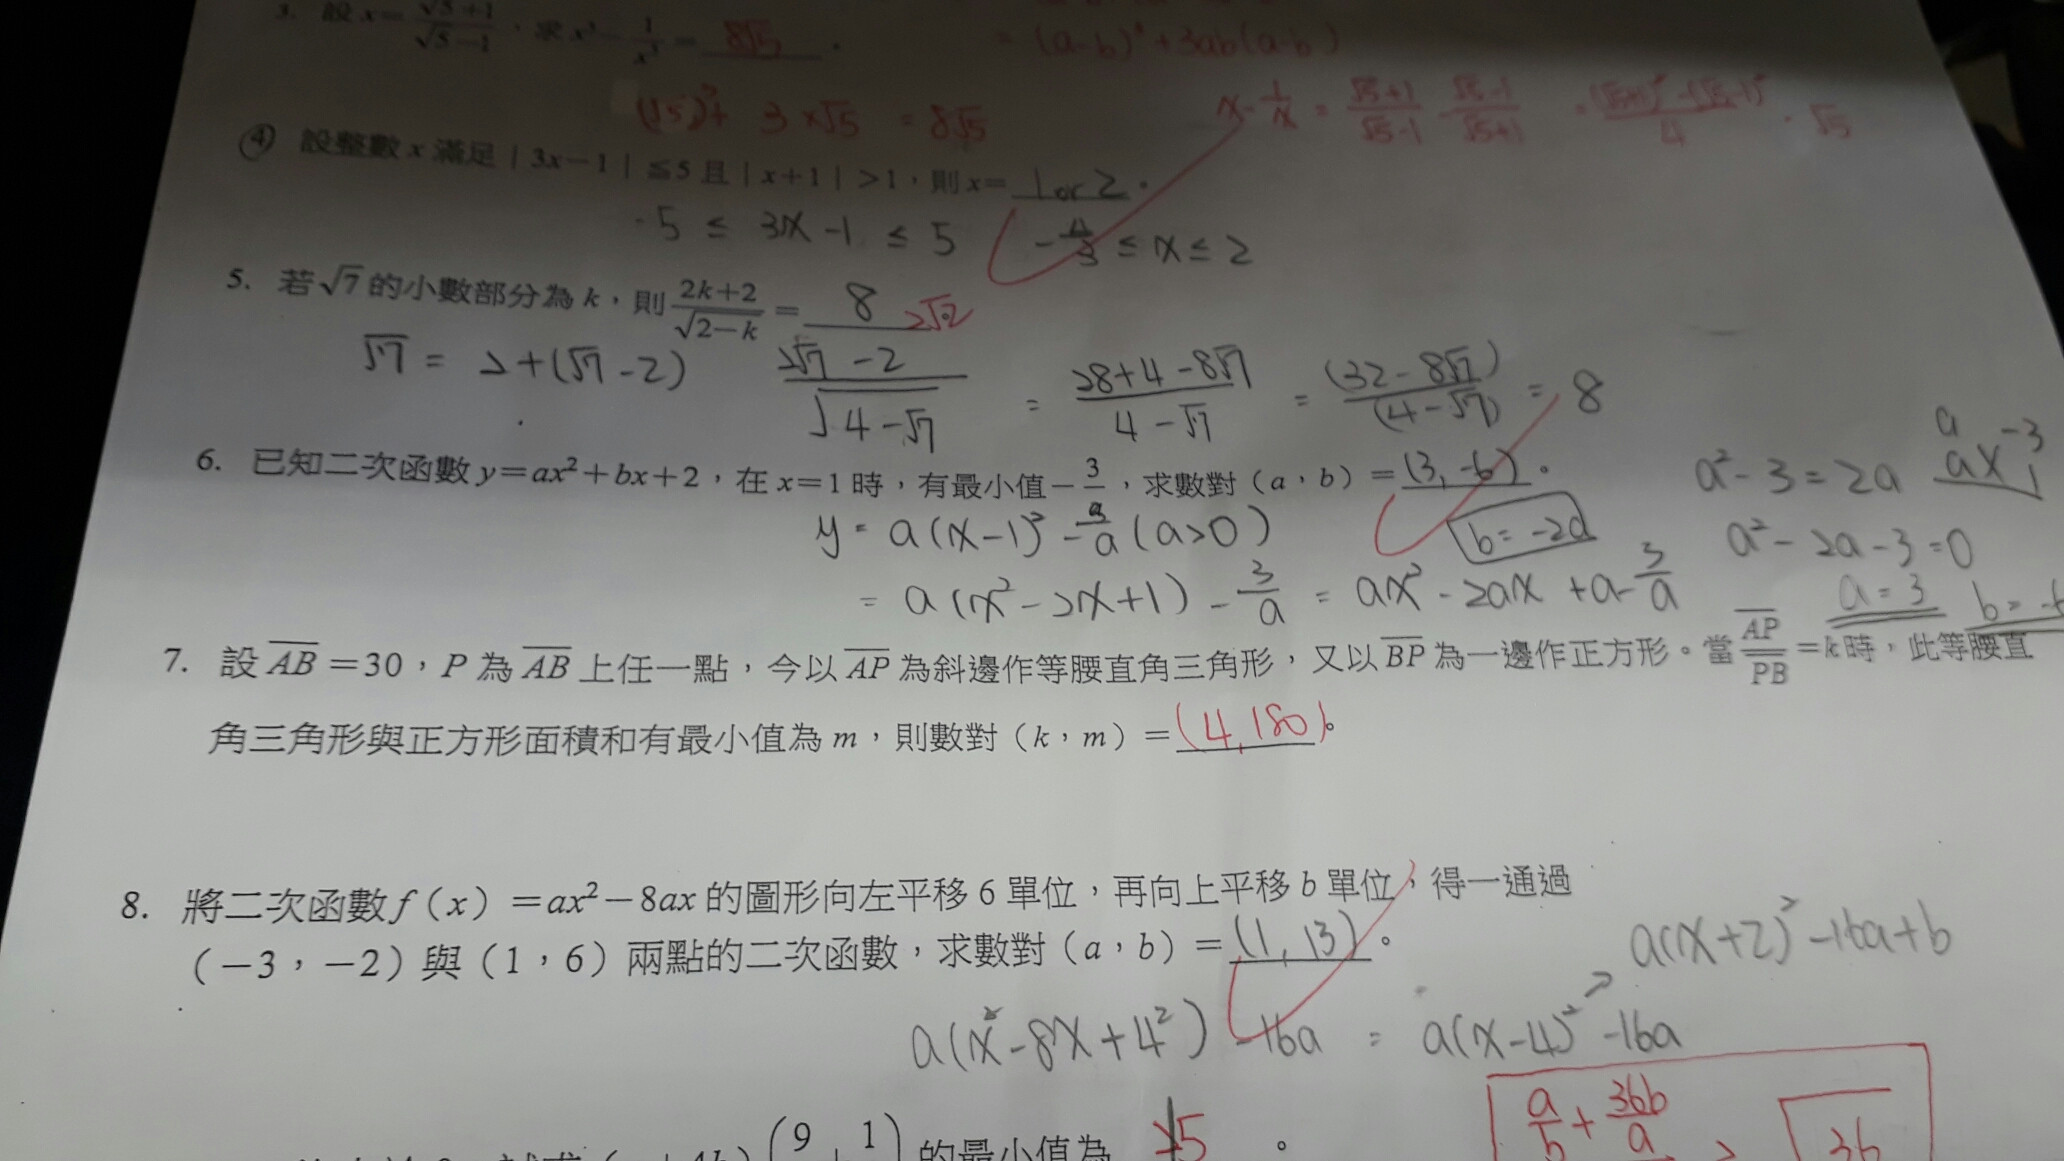 3. 設 x= √5+1 / √5−1 ，求 x³− 1/x³ = 8√5 。
= (a-b)³+3ab(a-b)
(√5)³+ 3×√5 = 8√5
x - 1/x = √5+1 / √5-1 - √5-1 / √5+1 = (√5+1)²-(√5-1)² / 4 = √5
④ 設整數 x 滿足｜3x−1｜≦5 且｜x+1｜>1，則 x= 1 or 2 。
-5 ≤ 3x -1 ≤ 5 - 4/3 ≤ x ≤ 2
5. 若√7的小數部分為 k，則 2k+2 / √2−k = 8 2√2
√7 = 2+(√7 -2) 2√7 -2 / √4-√7 = 28+4-8√7 / 4-√7 = (32-8√7) / (4-√7) = 8
6. 已知二次函數 y=ax²+bx+2，在 x=1 時，有最小值− 3/a ，求數對（a，b）= (3, -6) 。
a²-3=2a
y = a(x-1)² - 3/a (a>0) b=-2a a²-2a-3=0
= a(x²-2x+1) - 3/a = ax²-2ax +a- 3/a a=3
7. 設 AB=30，P 為 AB 上任一點，今以 AP 為斜邊作等腰直角三角形，又以 BP 為一邊作正方形。當 AP/PB =k 時，此等腰直
角三角形與正方形面積和有最小值為 m，則數對（k，m）= (4,180) 。
8. 將二次函數 f（x）=ax²−8ax 的圖形向左平移 6 單位，再向上平移 b 單位，得一通過
（−3，−2）與（1，6）兩點的二次函數，求數對（a，b）= (1, 13) 。
a(x+2)²-16a+b
a(x²-8x+4²) -16a = a(x-4)²-16a
a/b + 36b/a 36
9 1 的最小值為 。